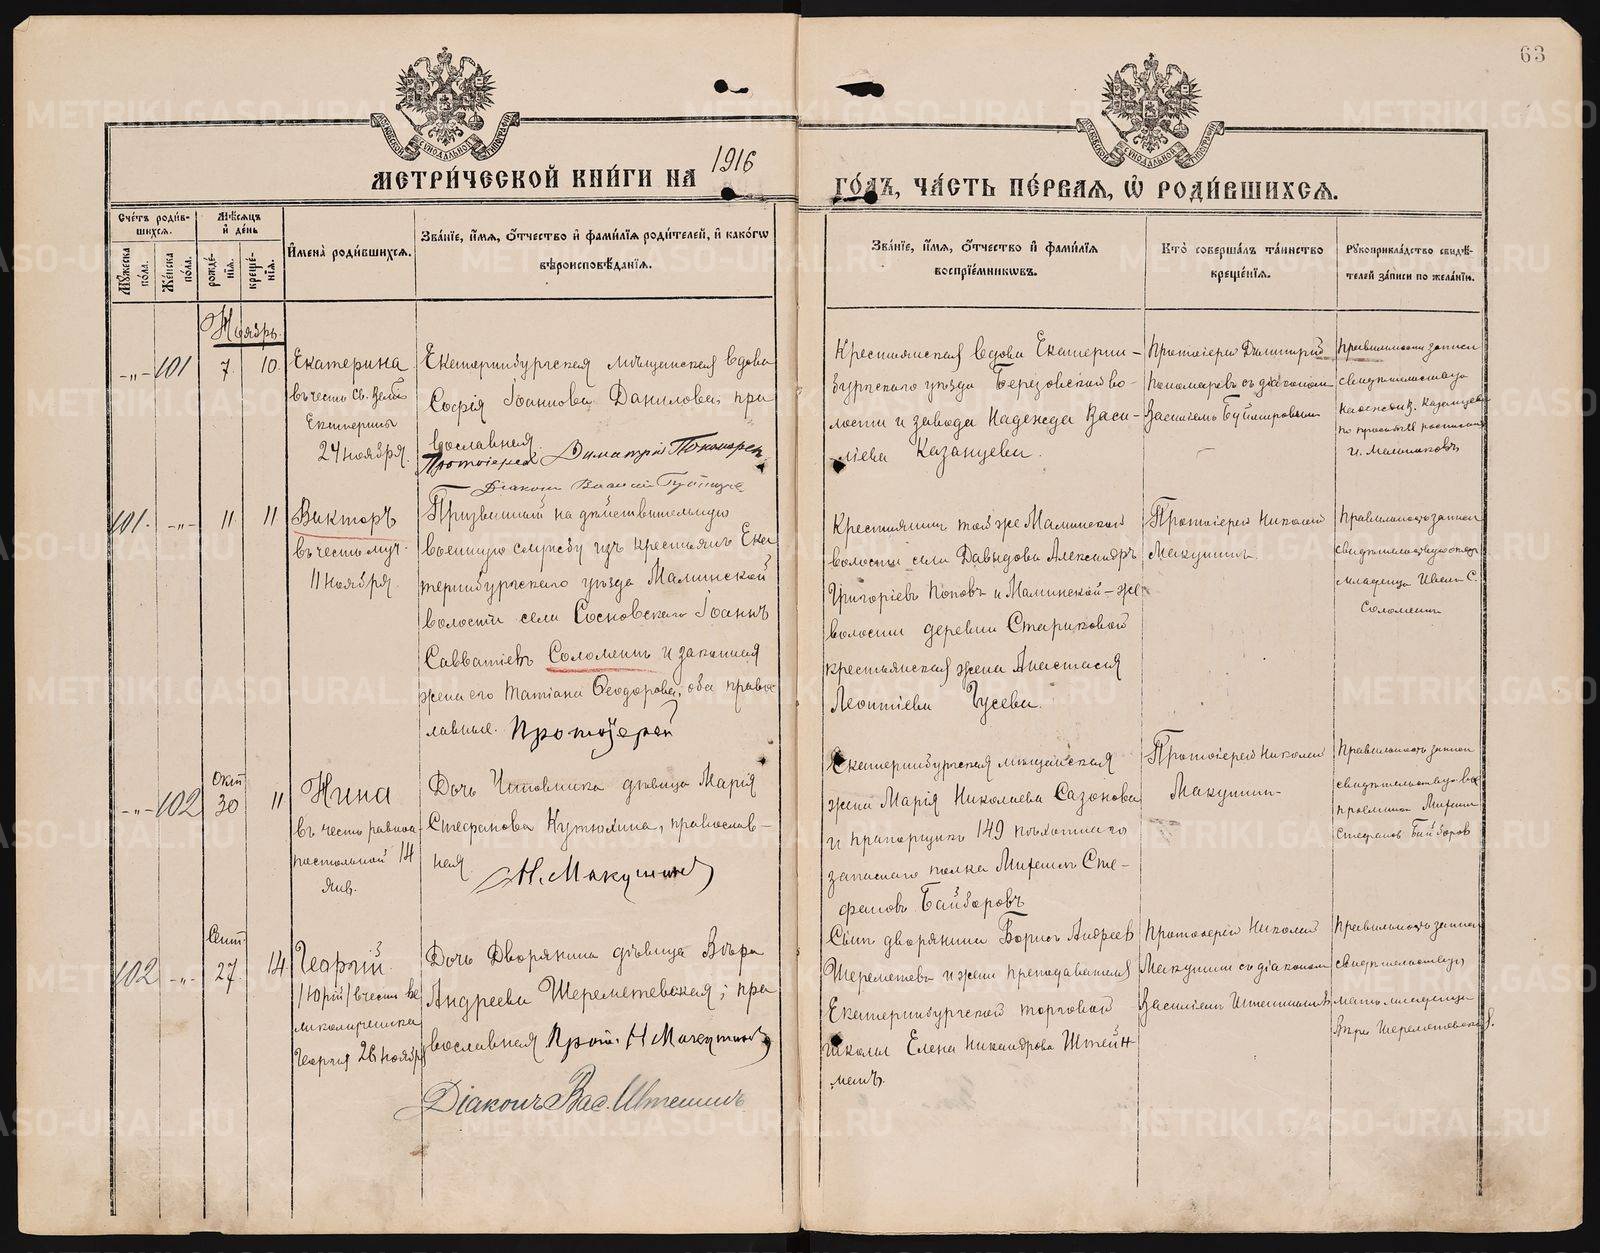 63
МОСКОВСКОЙ СѴНОДАЛЬНОЙ ТИПОГРАФІИ
МОСКОВСКОЙ СѴНОДАЛЬНОЙ ТИПОГРАФІИ
МЕТРИ́ЧЕСКОЙ КНИ́ГИ НА 1916
ГО́ДЪ, ЧА́СТЬ ПЕ́РВАЯ, Ѽ РОДИ́ВШИХСЯ.
Сче́тъ роди́в-
шихся.
Му́жеска
по́ла.
Же́нска
по́ла.
Мѣ́сяцъ
и҆ де́нь
рожде́-
нїя.
креще́-
нїя.
И҆мена̀ роди́вшихся.
Зва́нїе, и҆́мя, ѻ҆́тчество и҆ фами́лїя роди́телей, и҆ како́гѡ
вѣроисповѣ́данїя.
Зва́нїе, и҆́мя, ѻ҆́тчество и҆ фами́лїя
воспрїе́мникѡвъ.
Кто̀ соверша́лъ та́инство
креще́нїя.
Рукоприкла́дство свидѣ́-
телей за́писи по жела́нїю.
Ноябрь.
-„- 101 7 10
Екатерина
въ честь Св. Вели
Екатерины
24 ноября.
Екатеринбургская мѣщанская вдова
Софія Іоаннова Данилова, пра
вославная.
Протоіерей Димитрій Пономарев
Діакон Василий
Крестьянская вдова Екатерин-
бургскаго уѣзда Березовской во-
лости и завода Надежда Васи-
ліева Казанцева.
Протоіерей Димитрій
Пономаревъ съ діакономъ
Василіемъ
Правильность записи
свидѣтельствую
Казанцева
по просьбѣ
И. Мельниковъ
101. -„- 11 11
Викторъ
въ честь муч.
11 ноября.
Призванный на дѣйствительную
военную службу изъ крестьянъ Ека
теринбургскаго уѣзда Маминской
волости села Сосновскаго Іоаннъ
Савватіевъ Соломеинъ и законная
жена его Татіана Ѳеодорова, оба право
славные. Протоіерей
Крестьянинъ той же Маминской
волости села Давыдова Александръ
Григоріевъ Поповъ и Маминской-же
волости деревни Стариковой
крестьянская жена Анастасія
Леонтіева Гусева.
Протоіерей Николай
Макушинъ
Правильность записи
свидѣтельствую отецъ
младенца Иванъ С.
Соломеинъ
-„- 102 Окт 30 11
Нина
въ честь равноа
постольной 14
янв.
Дочь чиновника дѣвица Марія
Стефанова Кутюхина, православ-
ная
Н. Макушинъ
Екатеринбургская мѣщанская
жена Марія Николаева Сазонова
и прапорщикъ 149 пѣхотнаго
запаснаго полка Михаилъ Сте-
фановъ Байборовъ
Протоіерей Николай
Макушинъ
Правильность записи
свидѣтельствую вос
пріемникъ Михаилъ
Стефановъ Байборовъ
102 -„- Сент 27. 14
Георгій
/Юрій/ въ честь ве
ликомученика
Георгія 26 ноября
Дочь Дворянина дѣвица Вѣра
Андреева Шереметевская; пра
вославная Прот. Н Макушинъ
Діаконъ Вас. Иштешинъ
Сынъ дворянина Борисъ Андреев
Шереметевъ и жена преподавателя
Екатеринбургской торговой
школы Елена Никандрова Штейн
манъ.
Протоіерей Николай
Макушинъ съ діакономъ
Василіемъ
Правильность записи
свидѣтельствую
мать младенца
Вѣра Шереметевская.
METRIKI.GASO-URAL.RU